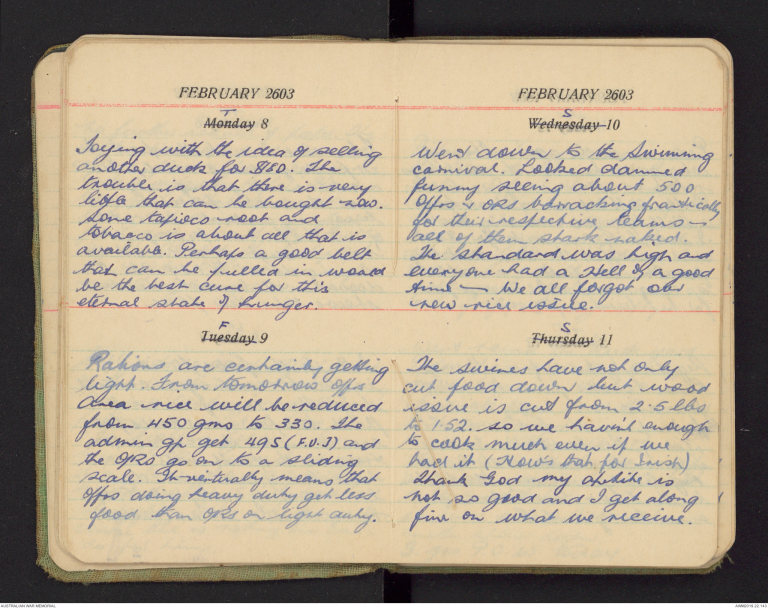 FEBRUARY 2603
T
Monday 8
Toying with the idea of selling
another duck for $80. The
trouble is that there is very
little that can be bought now.
Some tapioco root and
tobacco is about all that is
available. Perhaps a good belt
that can be pulled in would
be the best cure for this
eternal state of hunger.
F
Tuesday 9
Rations are certainly getting
light. From tomorrow offrs
area rice will be reduced
from 450 gms to 330. The
admin gp get 495 (F.U.J) and
the ORs go on to a sliding
scale. It virtually means that
Offrs doing heavy duty get less
food than ORs on light duty.
FEBRUARY 2603
S
Wednesday 10
Went down to the Swimming
carnival. Looked damned
funny seeing about 500
Offrs & ORs barracking frantically
for their respective teams -
all of them stark naked.
The standard was high and
everyone had a Hell of a good
time - We all forgot our
new rice issue.
S
Thursday 11
The swines have not only
cut food down but wood
issue is cut from 2.5 lbs
to 1.52. so we haven't enough
to cook much even if we
had it (How's that for Irish)
Thank God my appetite is
not so good and I get along
fine on what we receive.
AUSTRALIAN WAR MEMORIAL